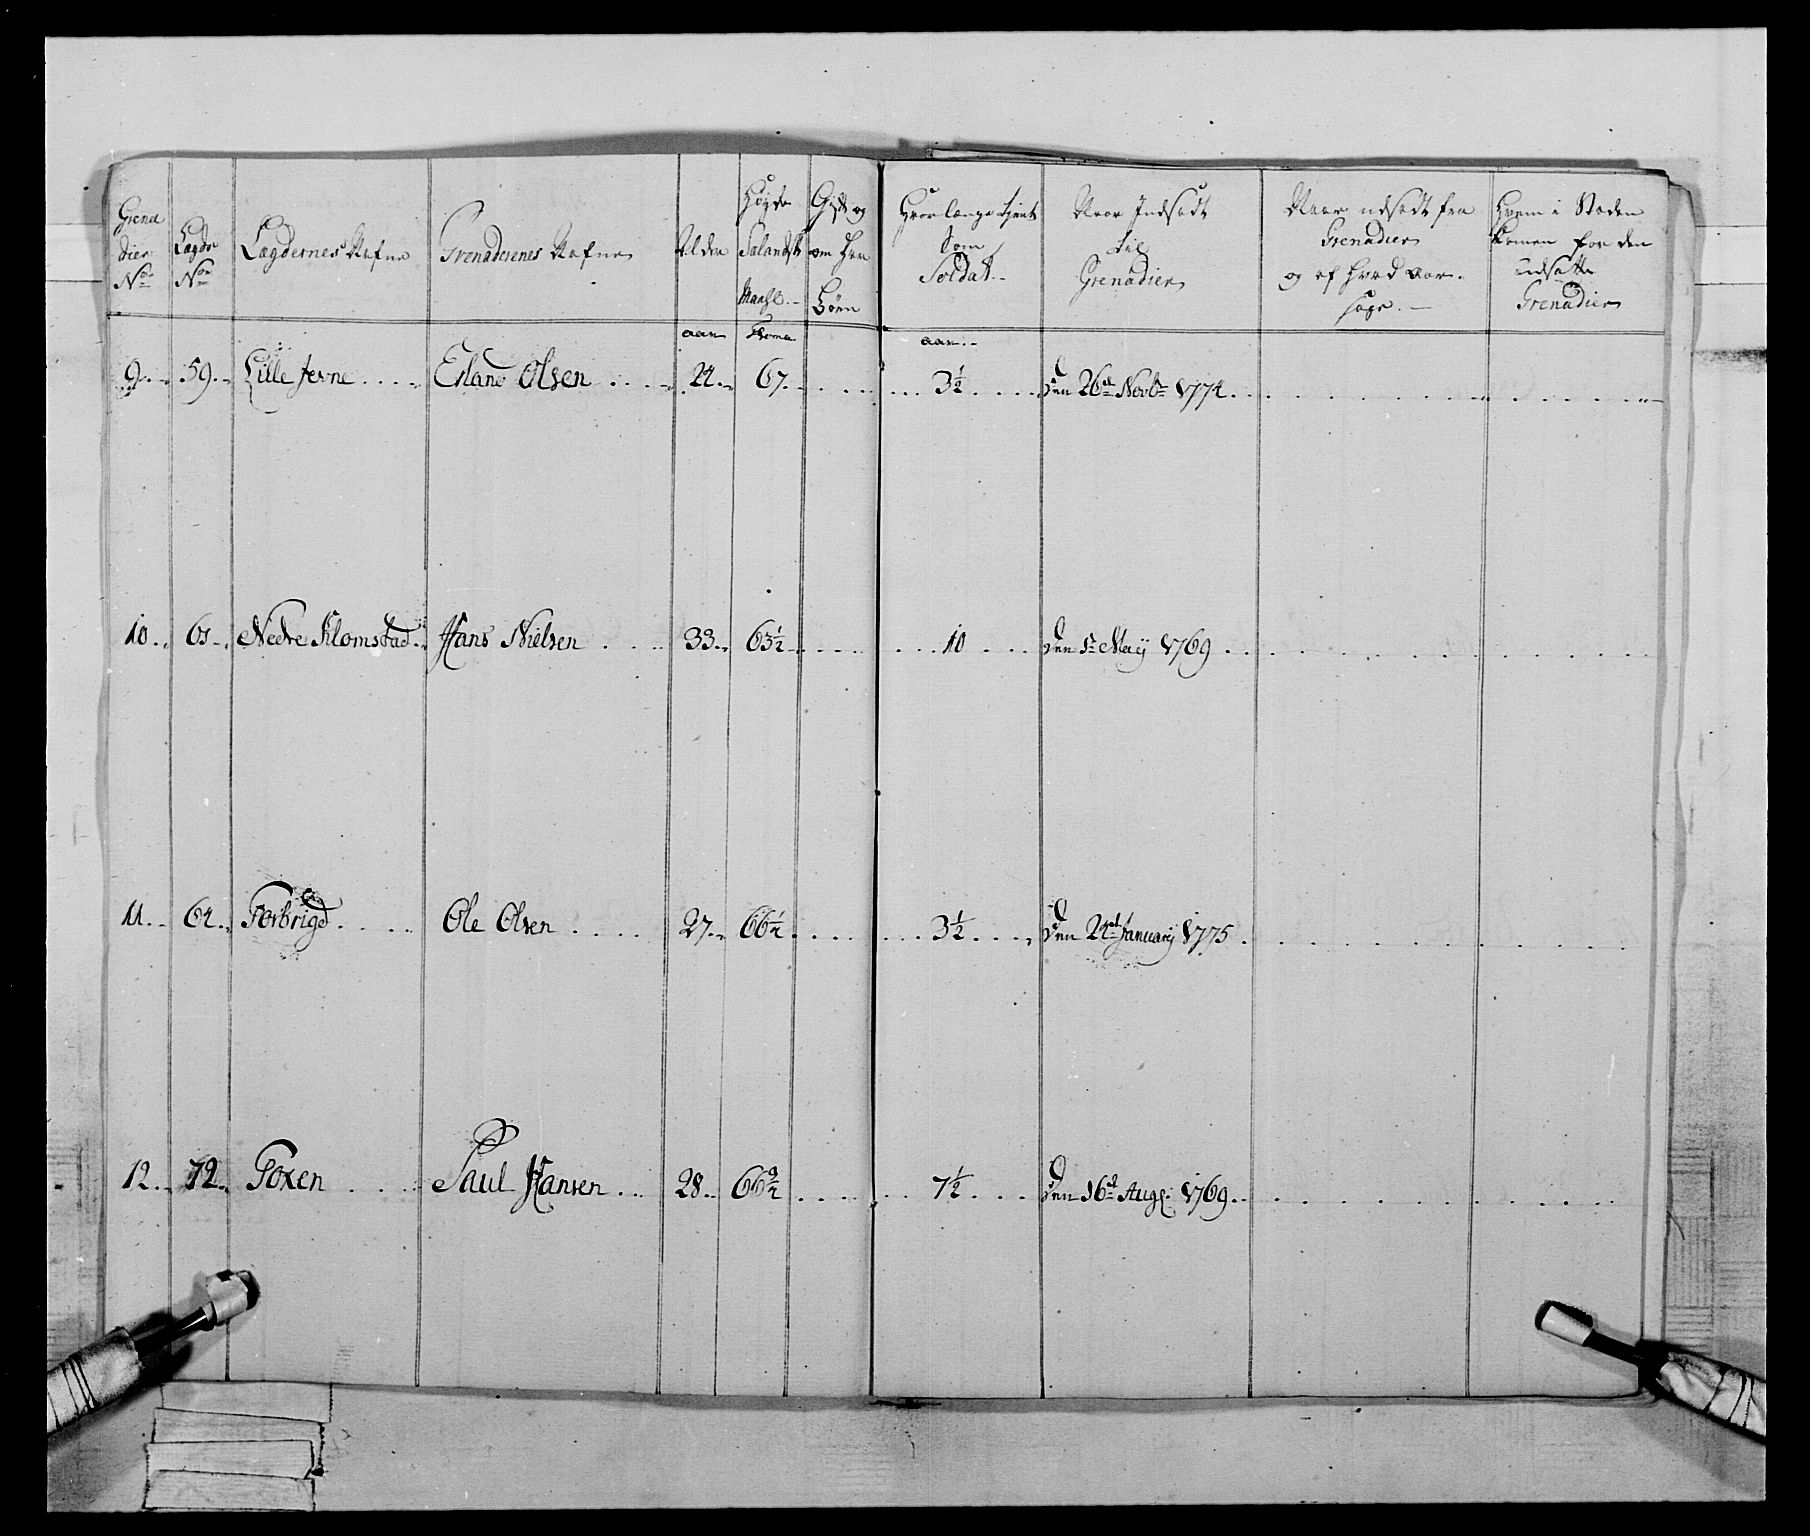 Grena
dier
No
Lægde
No
Lægdernes Nafne
Grenaderenes Nafne
Alder
Høyde
Salandsk
Maahl.
Gift og
om Har
Børn
Hvor længe tient
Som
Soldat.
Naar Indsadt
til
Grenadier
Naar udsadt fra
Grenadier
og af hvad aar-
sage.
Hvem i Stæden
komen for den
udsatte
Grenadier
aar Tomer aar
9 59 Lille Jevne Erland Olsen 24 67 3½ Den 26de Novbr 1774
10 61 Nedre Klomstad Hans Nielsen 33 63½ 10 Den 1te Maij 1769
11 64 Forbrigd Ole Olsen 27 66½ 3½ Den 24de Januarij 1775
12 72 Foxen Paul Hansen 28 66 7½ Den 16de Aug: 1769